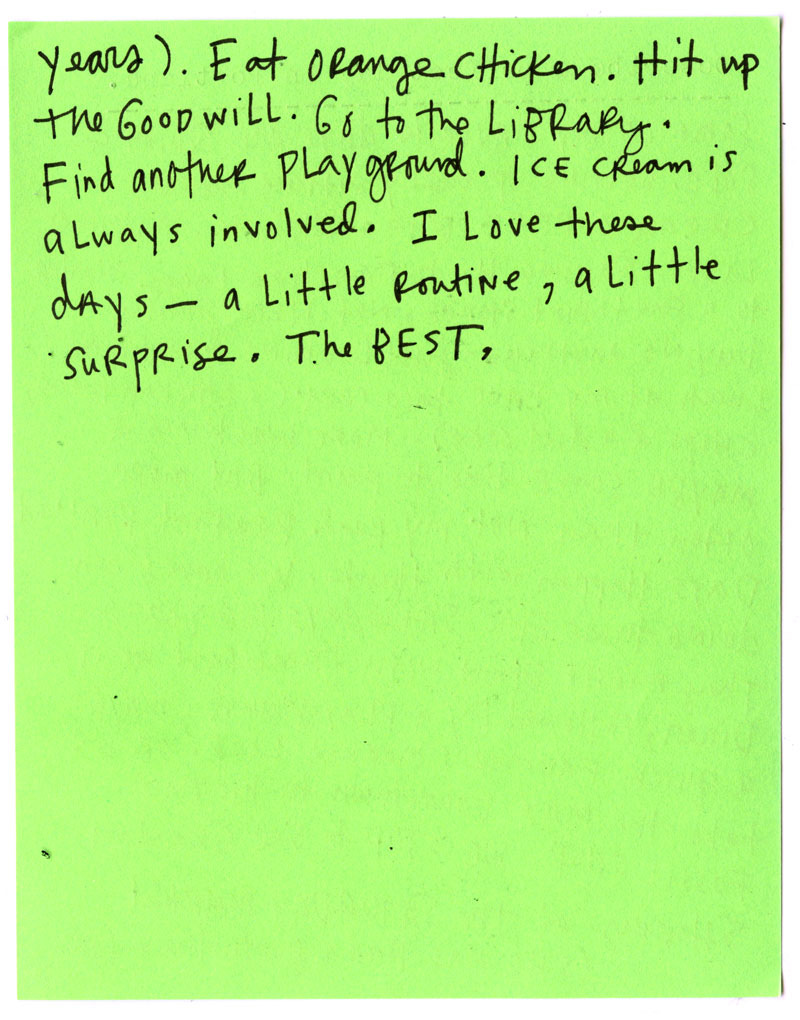 years). Eat ORange CHicken. Hit up
the GOODwiLL. Go to the LiBRARy.
Find anotheR PLAygRound. ICE cReam is
aLways involved. I Love these
dAys — a Little RoutiNe, a Little
SuRPRise. The BEST.